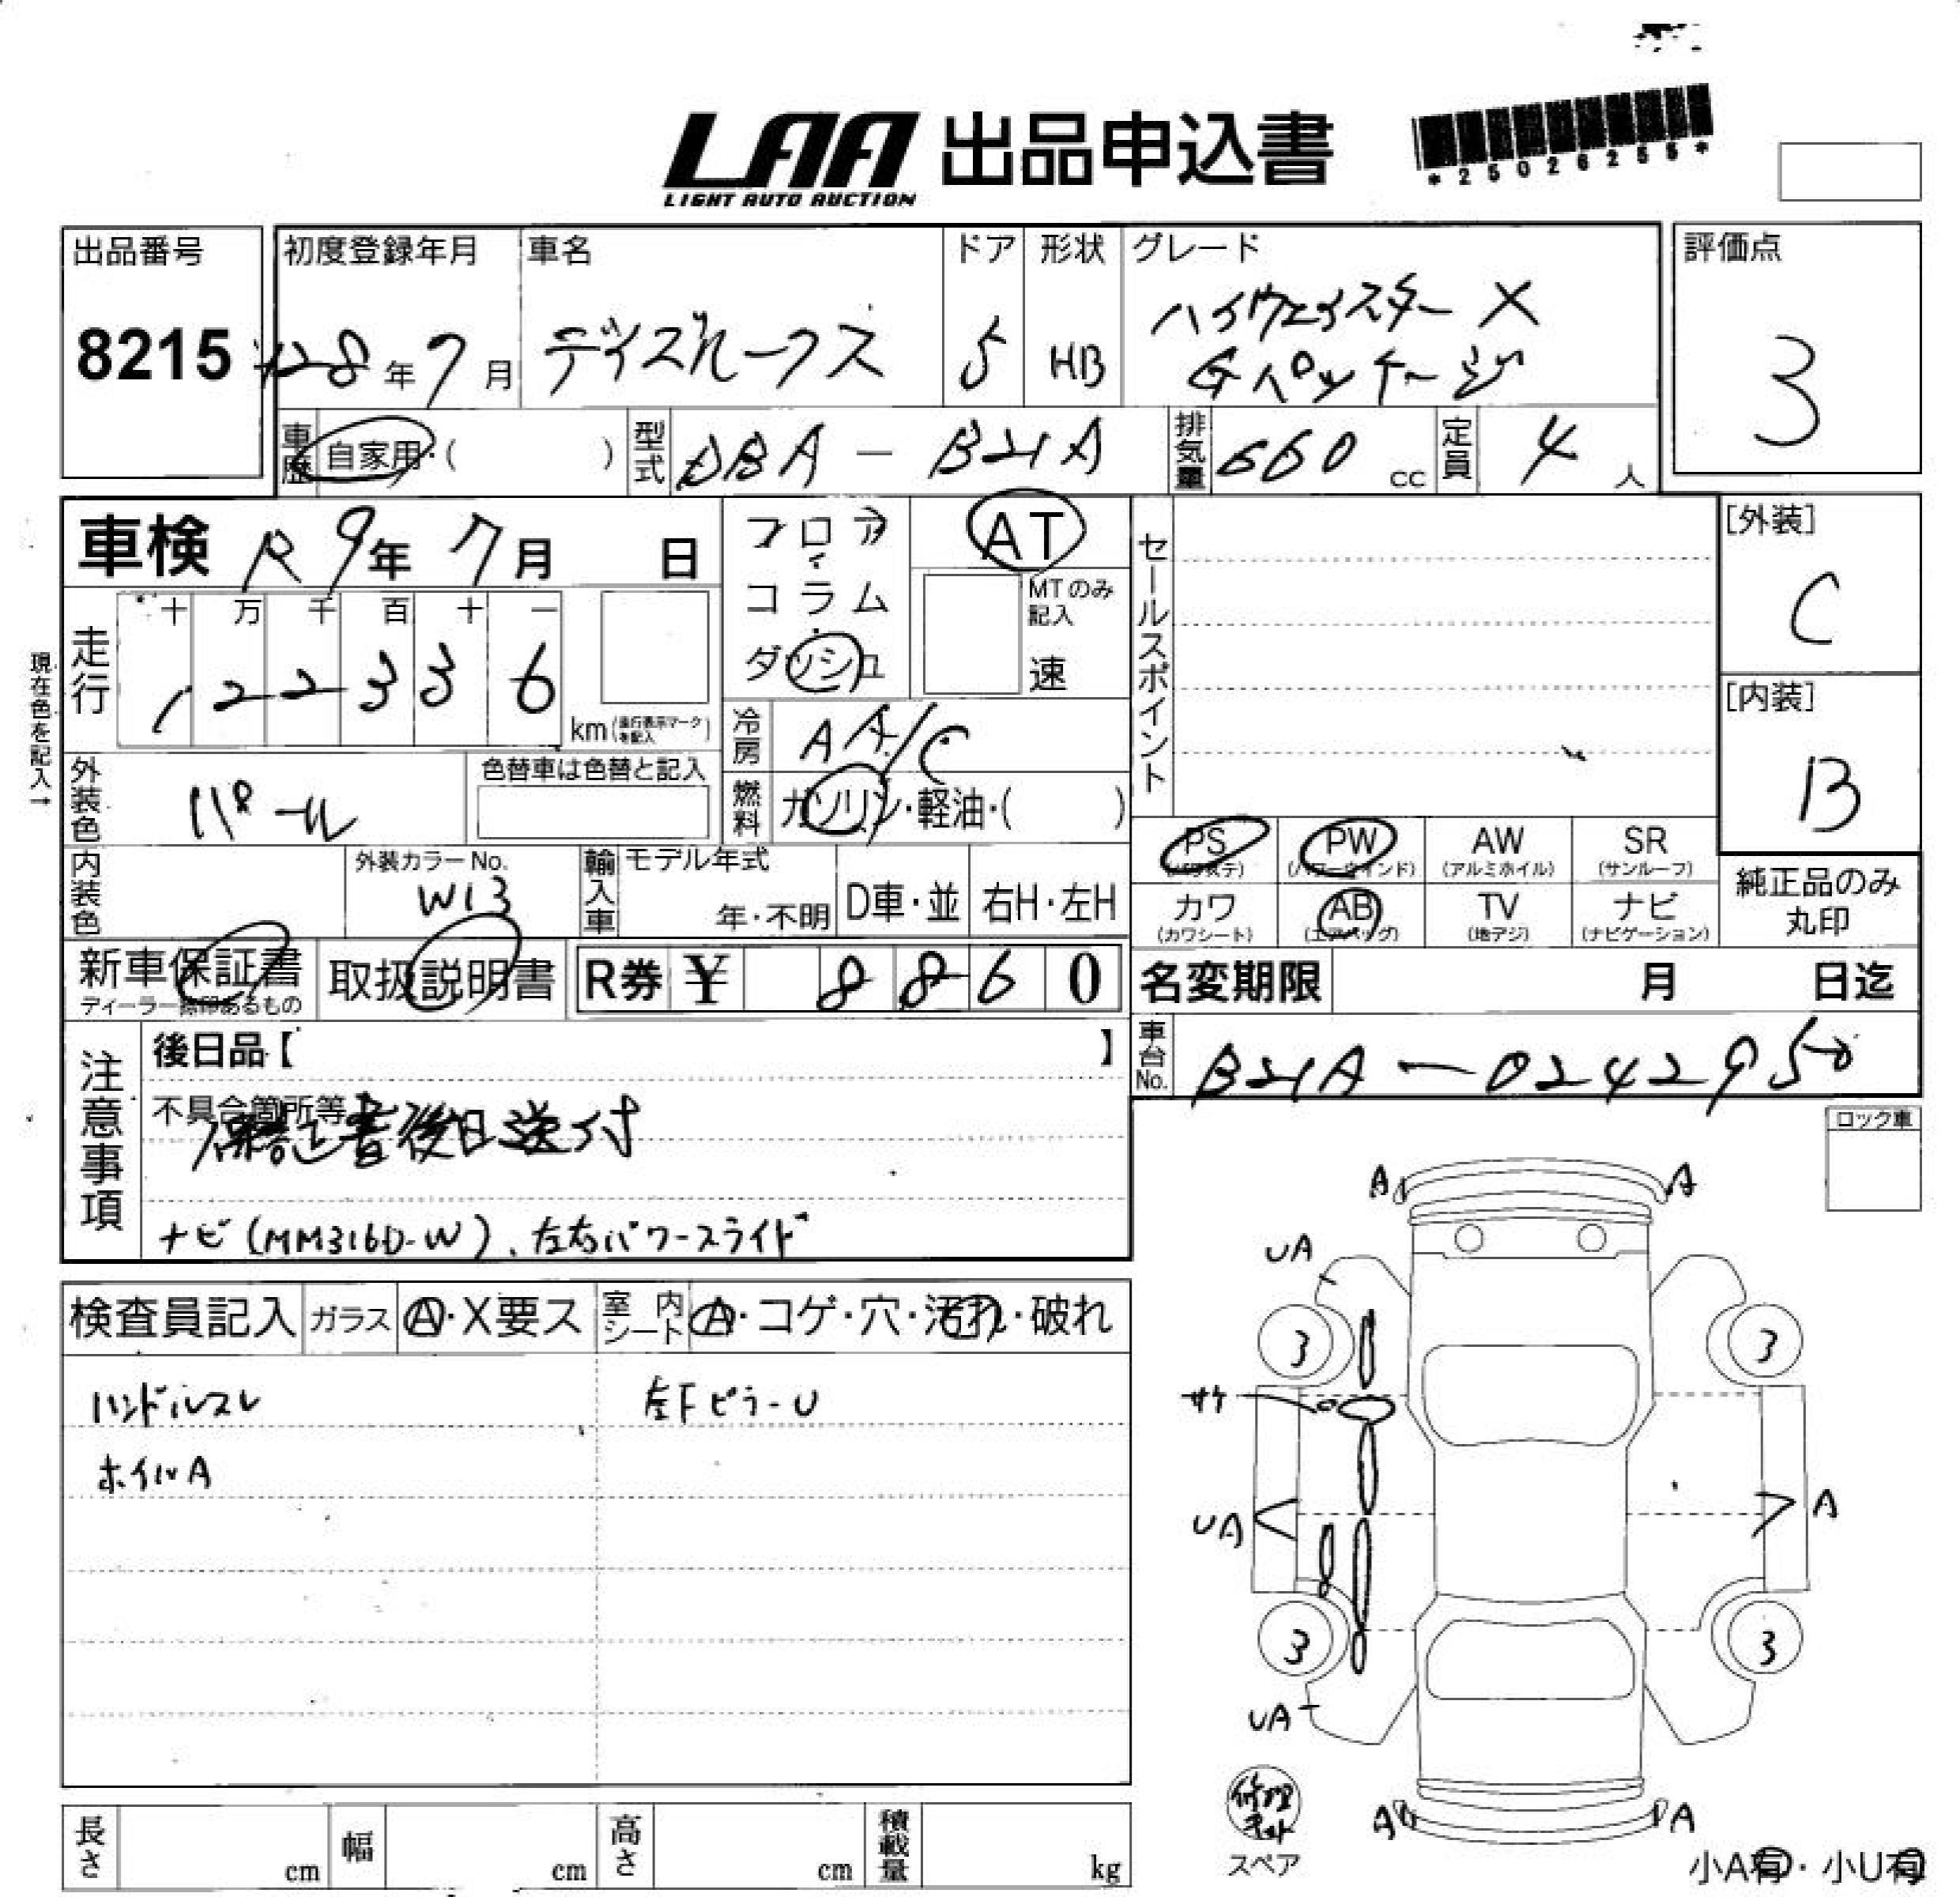 LAA 出品申込書
LIGHT AUTO AUCTION
*25026255*
出品番号
8215
初度登録年月
H28年7月
車名
デイズルークス
ドア
5
形状
HB
グレード
ハイウェイスター X
Gパッケージ
評価点
3
車歴
自家用・( )
型式
DBA - B21A
排気量
660 cc
定員
4 人
車検 R9年7月 日
フロア
コラム
ダッシュ
AT
MTのみ
記入
速
セールスポイント
[外装]
C
[内装]
B
現在色を記入→
走行
十 万 千 百 十 一
1 2 2 3 3 6
km(走行表示マークを記入)
冷房
AA/C
燃料
ガソリン・軽油・( )
外装色
パール
色替車は色替と記入
内装色
外装カラーNo.
W13
輸入車
モデル年式
年・不明
D車・並
右H・左H
PS
(パワステ)
PW
(パワーウインド)
AW
(アルミホイル)
SR
(サンルーフ)
カワ
(カワシート)
AB
(エアバッグ)
TV
(地デジ)
ナビ
(ナビゲーション)
純正品のみ
丸印
新車保証書
ディーラー捺印あるもの
取扱説明書
R券 ¥ 8 8 6 0
名変期限 月 日迄
車台No.
B21A-0242950
注意事項
後日品【 】
不具合箇所等
保証書後日送付
ナビ(MM316D-W)、左右パワースライド
ロック車
検査員記入
ガラス
A・X要ス
室内シート
A・コゲ・穴・汚れ・破れ
ハンドルスレ
左FピラーU
ホイルA
A A
UA
3 3
サケ
UA A
3 3
UA
A A
修理キット
スペア
小A有・小U有
長さ cm
幅 cm
高さ cm
積載量 kg